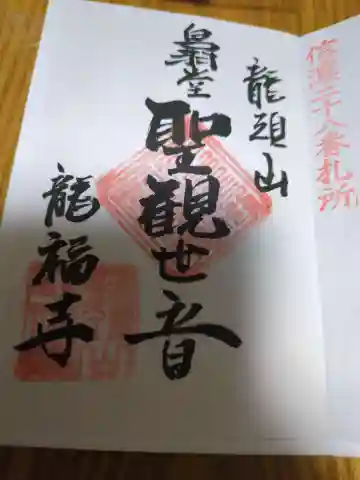 信濃二十八番札所
龍頭山
鳥羽堂
聖観世音
龍福寺